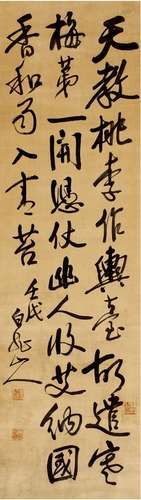 天教桃李作輿臺故遣寒
梅第一開憑仗幽人收艾納國
香和雨入青苔 壬戌 白龍山人